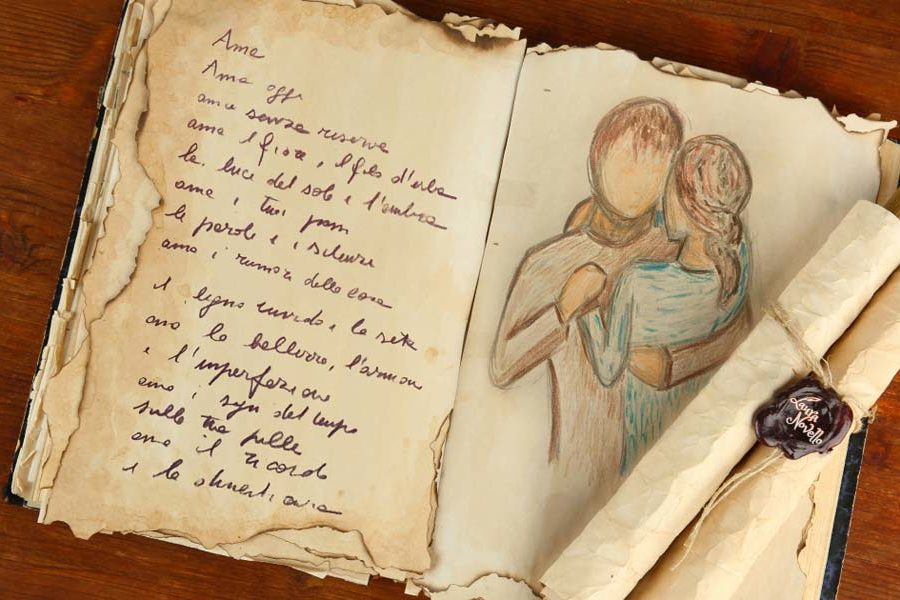 Ama
Ama oggi
ama senza riserve
ama il fiore, il filo d'erba
la luce del sole e l'ombra
ama i tuoi passi
le parole e i silenzi
ama i rumori della casa
il legno ruvido e la seta
ama la bellezza, l'armonia
e l'imperfezione
ama i segni del tempo
sulla tua pelle
ama il ricordo
e la
Laura
Novello